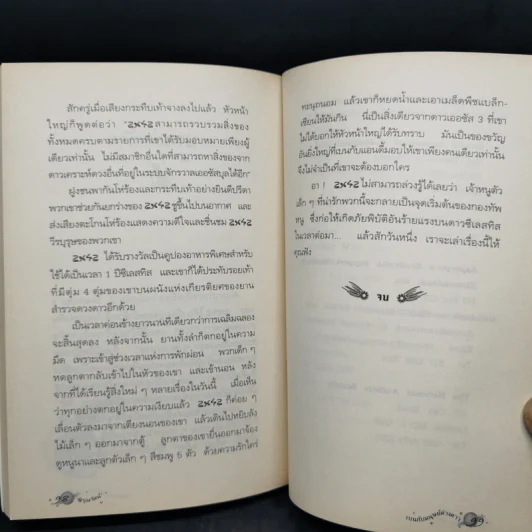 สักครู่เมื่อเสียงกระทืบเท้าจางลงไปแล้ว หัวหน้า
ใหญ่ก็พูดต่อว่า "2X42 สามารถรวบรวมสิ่งของ
ทั้งหมดครบตามรายการที่เขาได้รับมอบหมายเพียงผู้
เดียวเท่านั้น ไม่มีสมาชิกอื่นใดที่สามารถหาสิ่งของจาก
ดาวเคราะห์ดวงอื่นที่อยู่ในระบบจักรวาลเออซัสบูลได้อีก"
ฝูงชนพากันโห่ร้องและกระทืบเท้าอย่างยินดีปรีดา
พวกเขาช่วยกันยกร่างของ 2X42 ชูขึ้นไปบนอากาศ และ
ส่งเสียงตะโกนโห่ร้องแสดงความดีใจและชื่นชม 2X42
วีรบุรุษของพวกเขา
2X42 ได้รับรางวัลเป็นคูปองอาหารพิเศษสำหรับ
ใช้ได้เป็นเวลา 1 ปีซีเลสทิส และเขาก็ได้ประทับรอยเท้า
ที่มีตุ่ม 4 ตุ่มของเขาบนผนังแห่งเกียรติยศของยาน
สำรวจดวงดาวอีกด้วย
เป็นเวลาค่อนข้างยาวนานทีเดียวกว่าการเฉลิมฉลอง
จะสิ้นสุดลง หลังจากนั้น ยานทั้งลำก็ตกอยู่ในความ
มืด เพราะเข้าสู่ช่วงเวลาแห่งการพักผ่อน พวกเด็ก ๆ
หดลูกตากลับเข้าไปในหัวของเขา และเข้านอน หลัง
จากที่ได้เรียนรู้สิ่งใหม่ ๆ หลายเรื่องในวันนี้ เมื่อเห็น
ว่าทุกอย่างตกอยู่ในความเงียบแล้ว 2X42 ก็ค่อย ๆ
เลื่อนตัวลงมาจากเตียงนอนของเขา แล้วเดินไปหยิบลัง
ไม้เล็ก ๆ ออกมาจากตู้ ลูกตาของเขายื่นออกมาจ้อง
ดูหนูนาและลูกตัวเล็ก ๆ สีชมพู 5 ตัว ด้วยความรักใคร่
ทะนุถนอม แล้วเขาก็หยดน้ำและเอาเมล็ดพืชแบล็ก-
เซียนให้มันกิน นี่เป็นสิ่งเดียวจากดาวเออซัส 3 ที่เขา
ไม่ได้บอกให้หัวหน้าใหญ่ได้รับทราบ มันเป็นของขวัญ
อันยิ่งใหญ่ที่เบนกับแอนดี้มอบให้เขาเพียงคนเดียวเท่านั้น
จึงไม่จำเป็นที่เขาจะต้องบอกใคร
อา ! 2X42 ไม่สามารถล่วงรู้ได้เลยว่า เจ้าหนูตัว
เล็ก ๆ ที่น่ารักพวกนี้จะกลายเป็นจุดเริ่มต้นของกองทัพ
หนู ซึ่งก่อให้เกิดภัยพิบัติอันร้ายแรงบนดาวซีเลสทิส
ในเวลาต่อมา... แล้วสักวันหนึ่ง เราจะเล่าเรื่องนี้ให้
คุณฟัง
จบ